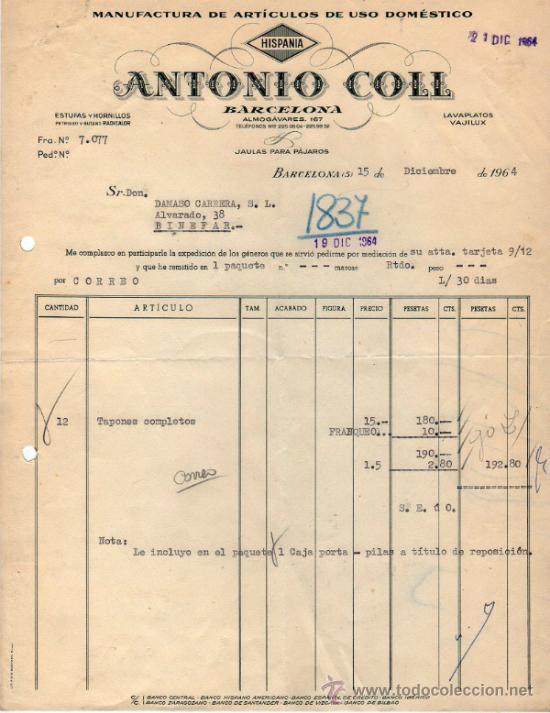 MANUFACTURA DE ARTÍCULOS DE USO DOMÉSTICO
HISPANIA
21 DIC 1964
ANTONIO COLL
BARCELONA
ALMOGÁVARES, 167
ESTUFAS Y HORNILLOS
PETROLEO Y BUTANO RADICALOR
LAVAPLATOS
VAJILUX
Fra. Nº 7.077
Pedº. Nº
JAULAS PARA PÁJAROS
BARCELONA (5) 15 de Diciembre de 1964
Sr. Don.
DAMASO CARRERA, S. L.
Alvarado, 38
BINEFAR.-
1837
19 DIC 1964
Me complazco en participarle la expedición de los géneros que se sirvió pedirme por mediación de su atta. tarjeta 9/12
y que he remitido en 1 paquete n.º --- marcas Rtdo. peso ---
por CORREO L/ 30 dias
CANTIDAD ARTÍCULO TAM. ACABADO FIGURA PRECIO PESETAS CTS. PESETAS CTS.
12 Tapones completos 15.- 180.-
FRANQUEO. 10.-
190.-
1.5 2.80 192.80
Correo
S. E. ú O.
Nota:
Le incluyo en el paquete 1 Caja porta - pilas a título de reposición.
C/ BANCO CENTRAL - BANCO HISPANO AMERICANO - BANCO ESPAÑOL DE CRÉDITO - BANCO IBÉRICO
/C. BANCO ZARAGOZANO - BANCO DE SANTANDER - BANCO DE VIZCAYA - BANCO DE BILBAO
www.todocoleccion.net